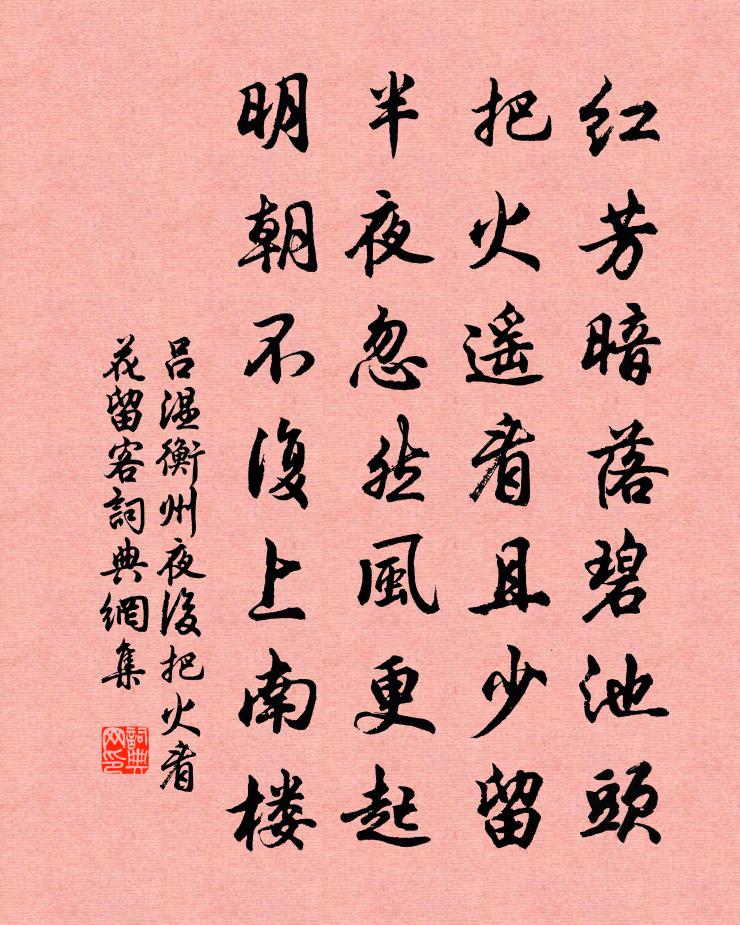 红芳暗落碧池頭
把火遥看且少留
半夜忽然風更起
明朝不復上南楼
吕温衡州夜後把火看
花留客詞典網集
詞典網印